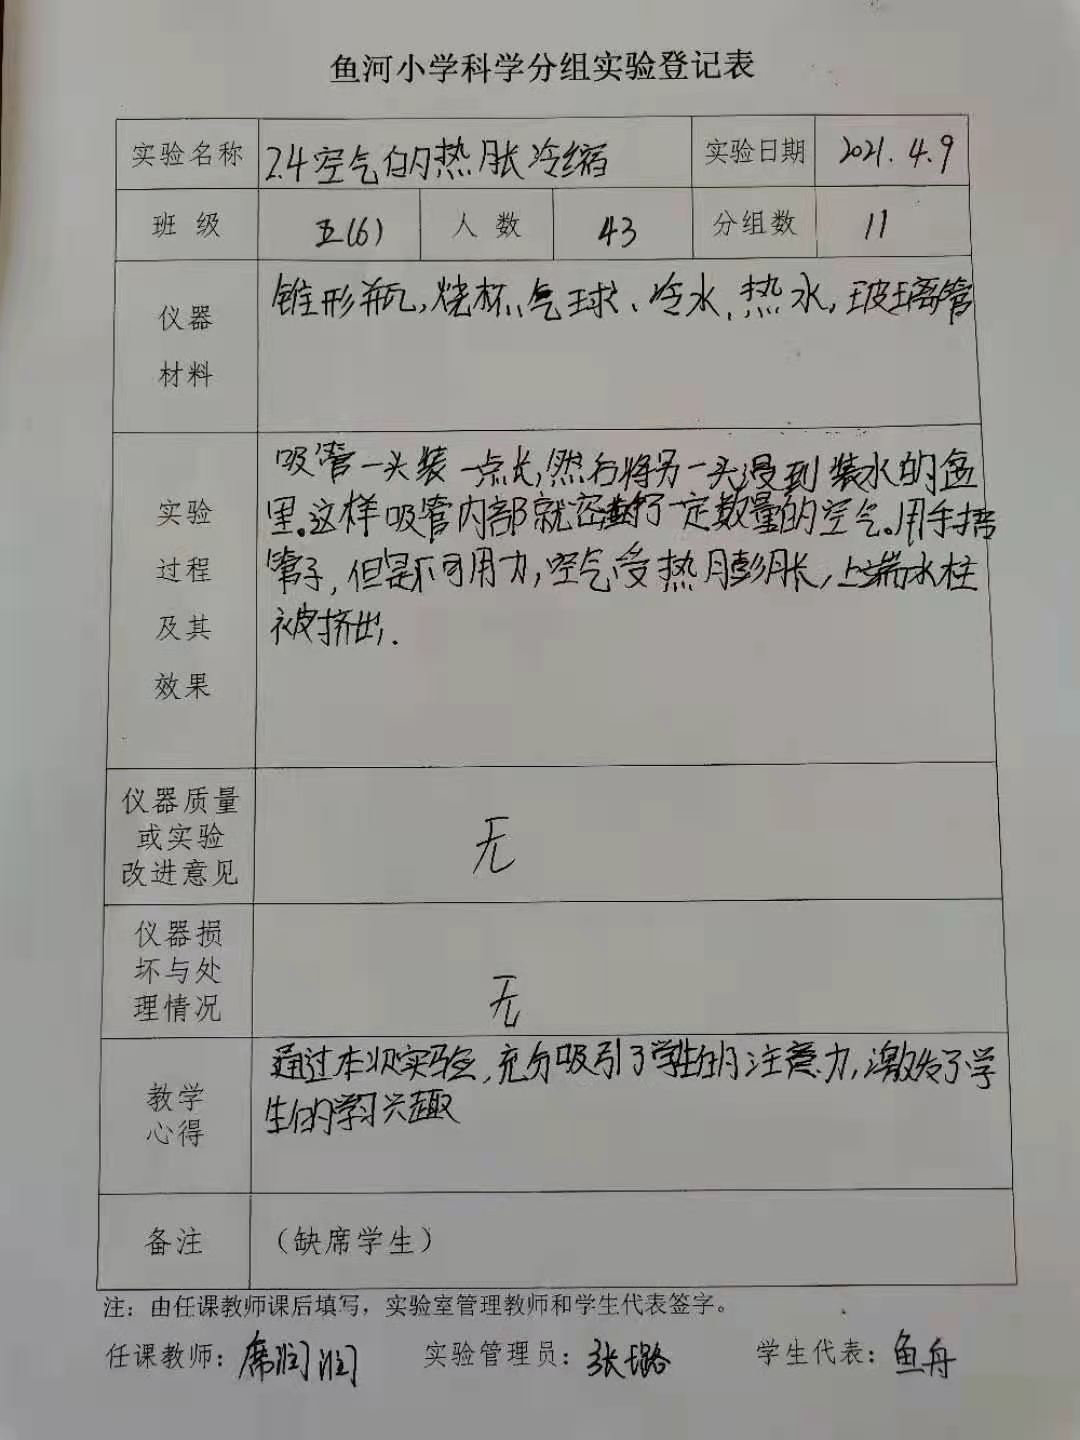 鱼河小学科学分组实验登记表
实验名称 2.4空气的热胀冷缩 实验日期 2021.4.9
班 级 五(6) 人 数 43 分组数 11
仪器
材料
锥形瓶,烧杯、气球、冷水、热水,玻璃管
实验
过程
及其
效果
吸管一头装一点水,然后将另一头浸到装水的盆
里。这样吸管内部就密封了一定数量的空气。用手捂
管子,但是不可用力,空气受热膨胀,上端水柱
被挤出.
仪器质量
或实验
改进意见
无
仪器损
坏与处
理情况
无
教学
心得
通过本次实验,充分吸引了学生的注意力,激发了学
生的学习兴趣
备注 (缺席学生)
注:由任课教师课后填写,实验室管理教师和学生代表签字。
任课教师:席润润 实验管理员:张璐 学生代表:鱼舟